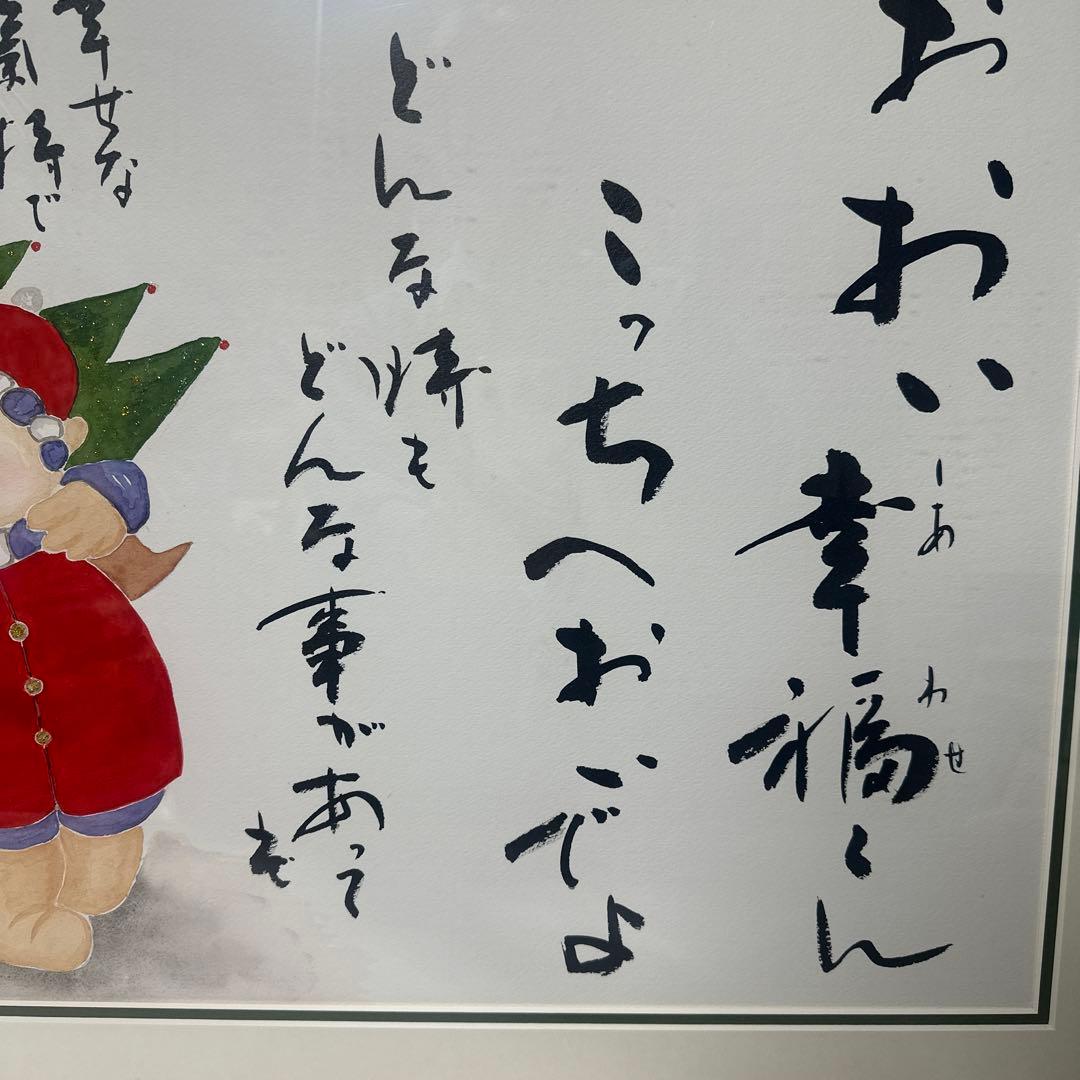 おおい幸福くん
しあわせ
こっちへおいでよ
どんな時も
どんな事があって
も
幸せな
氣持で